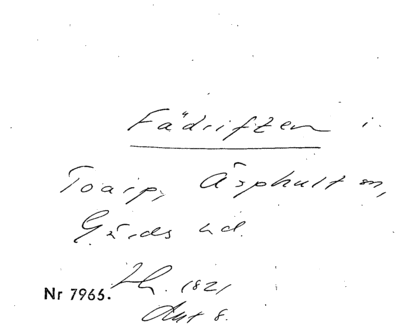 Fädriften i.
Toarp, Äsphult sn,
Gärds hd.
Nr 7965. 1821
Akt 8.